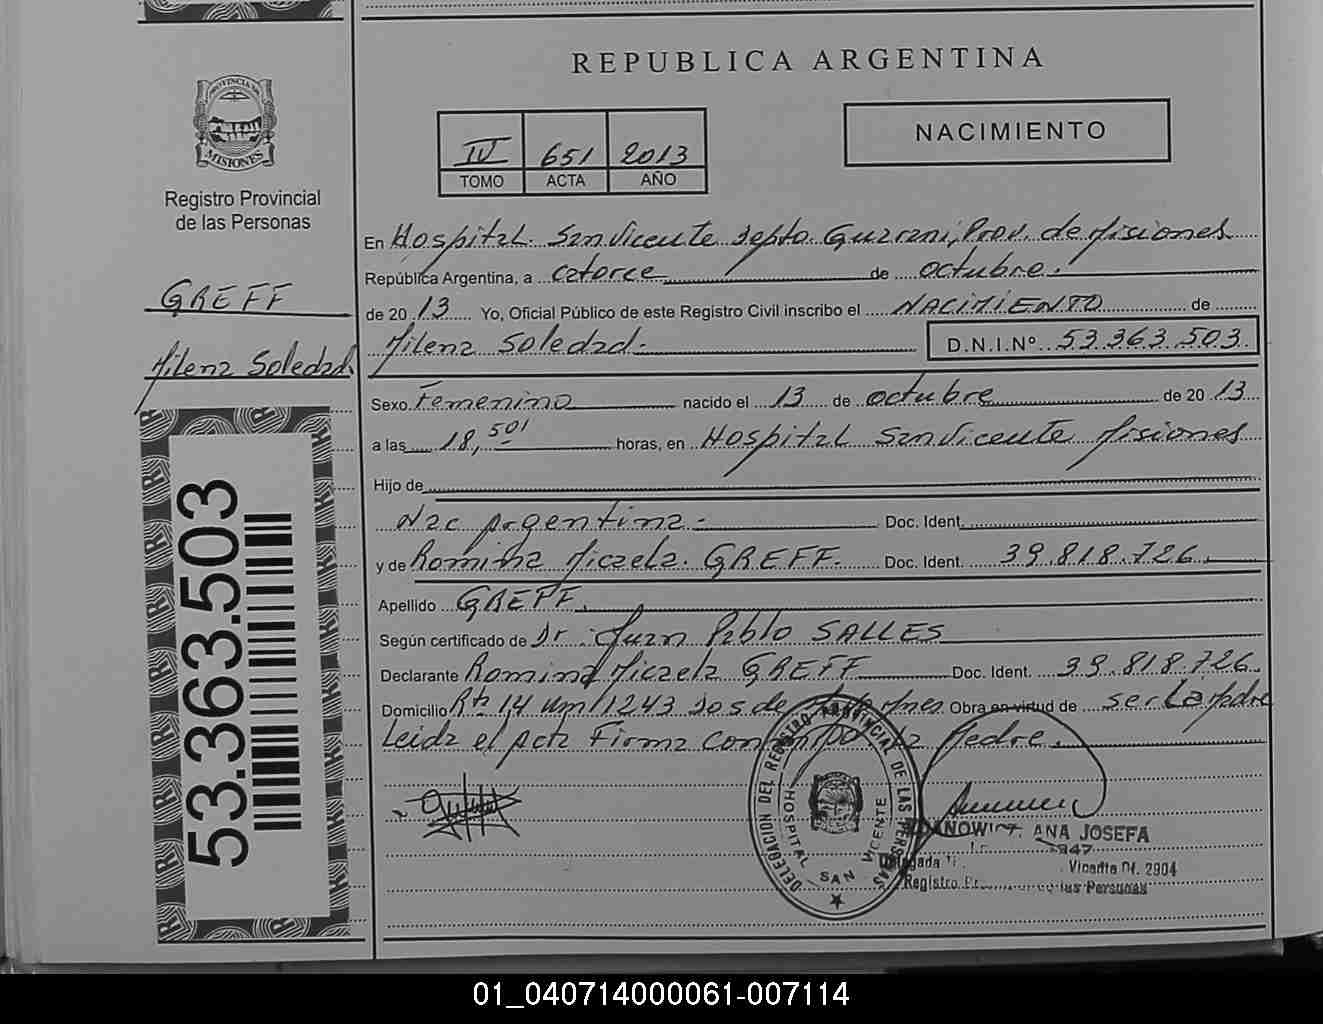 REPUBLICA ARGENTINA
PROVINCIA DE
MISIONES
Registro Provincial
de las Personas
GREFF
Milena Soledad
53.363.503
IV 651 2013
TOMO ACTA AÑO
NACIMIENTO
En Hospital San Vicente Depto. Guarani, Prov. de Misiones
República Argentina, a catorce de octubre.
de 20 13 Yo, Oficial Público de este Registro Civil inscribo el NACIMIENTO de
Milena Soledad.- D.N.I.Nº 53.363.503
Sexo Femenino nacido el 13 de octubre de 20 13
a las 18,50' horas, en Hospital San Vicente Misiones
Hijo de
Nac Argentina.- Doc. Ident.
y de Romina Micaela GREFF. Doc. Ident. 39.818.726.
Apellido GREFF.
Según certificado de Dr. Juan Pablo SALLES
Declarante Romina Micaela GREFF Doc. Ident. 39.818.726.
Domicilio Rta 14 Km 1243 Dos de Obra en virtud de ser La Madre
Leida el Acta Firma la Madre.
DELEGACION DEL REGISTRO PROVINCIAL DE LAS PERSONAS
HOSPITAL SAN VICENTE
ANA JOSEFA
Registro de las Personas
01_040714000061-007114